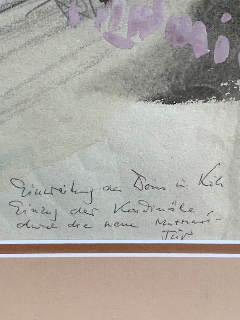 Einweihung des Doms in Köln
Einzug der Kardinäle
durch die neue
Tür